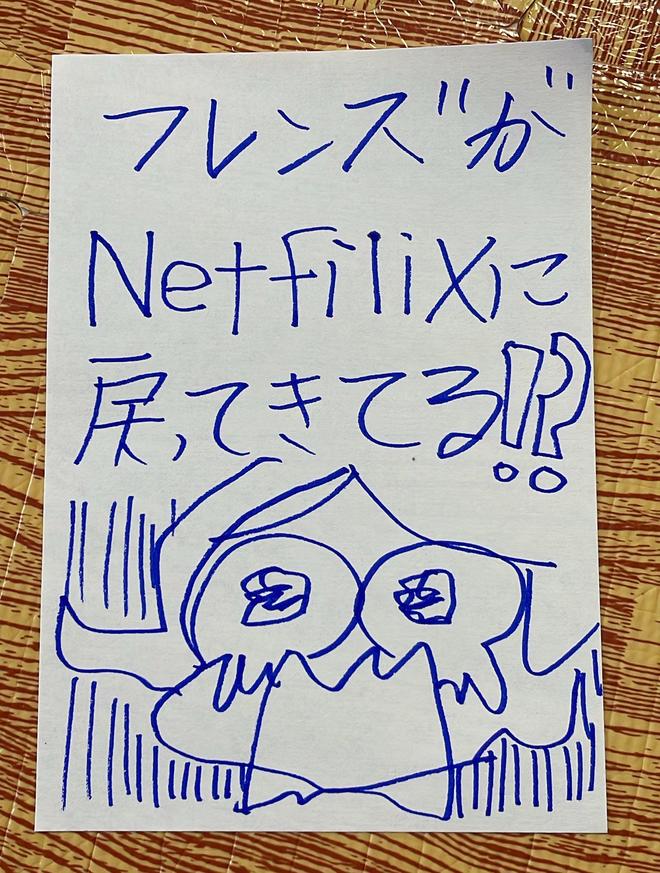 フレンズが
Netfilixに
戻ってきてる!?